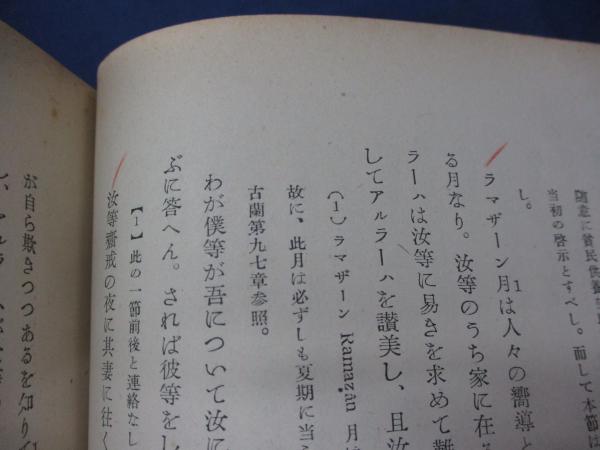 随意に貧民供養
当初の啓示とすべし。而して本節は
し。
ラマザーン月は人々の嚮導と
1
る月なり。汝等のうち家に在
ラーハは汝等に易きを求めて難
してアルラーハを讃美し、且汝
(1) ラマザーン Ramazān 月
故に、此月は必ずしも夏期に当
古蘭第九七章参照。
わが僕等が吾について汝に
ぶに答へん。されば彼等をし
【1】此の一節前後と連絡なし
汝等齋戒の夜に其妻に往く
が自ら欺きつつあるを知りて